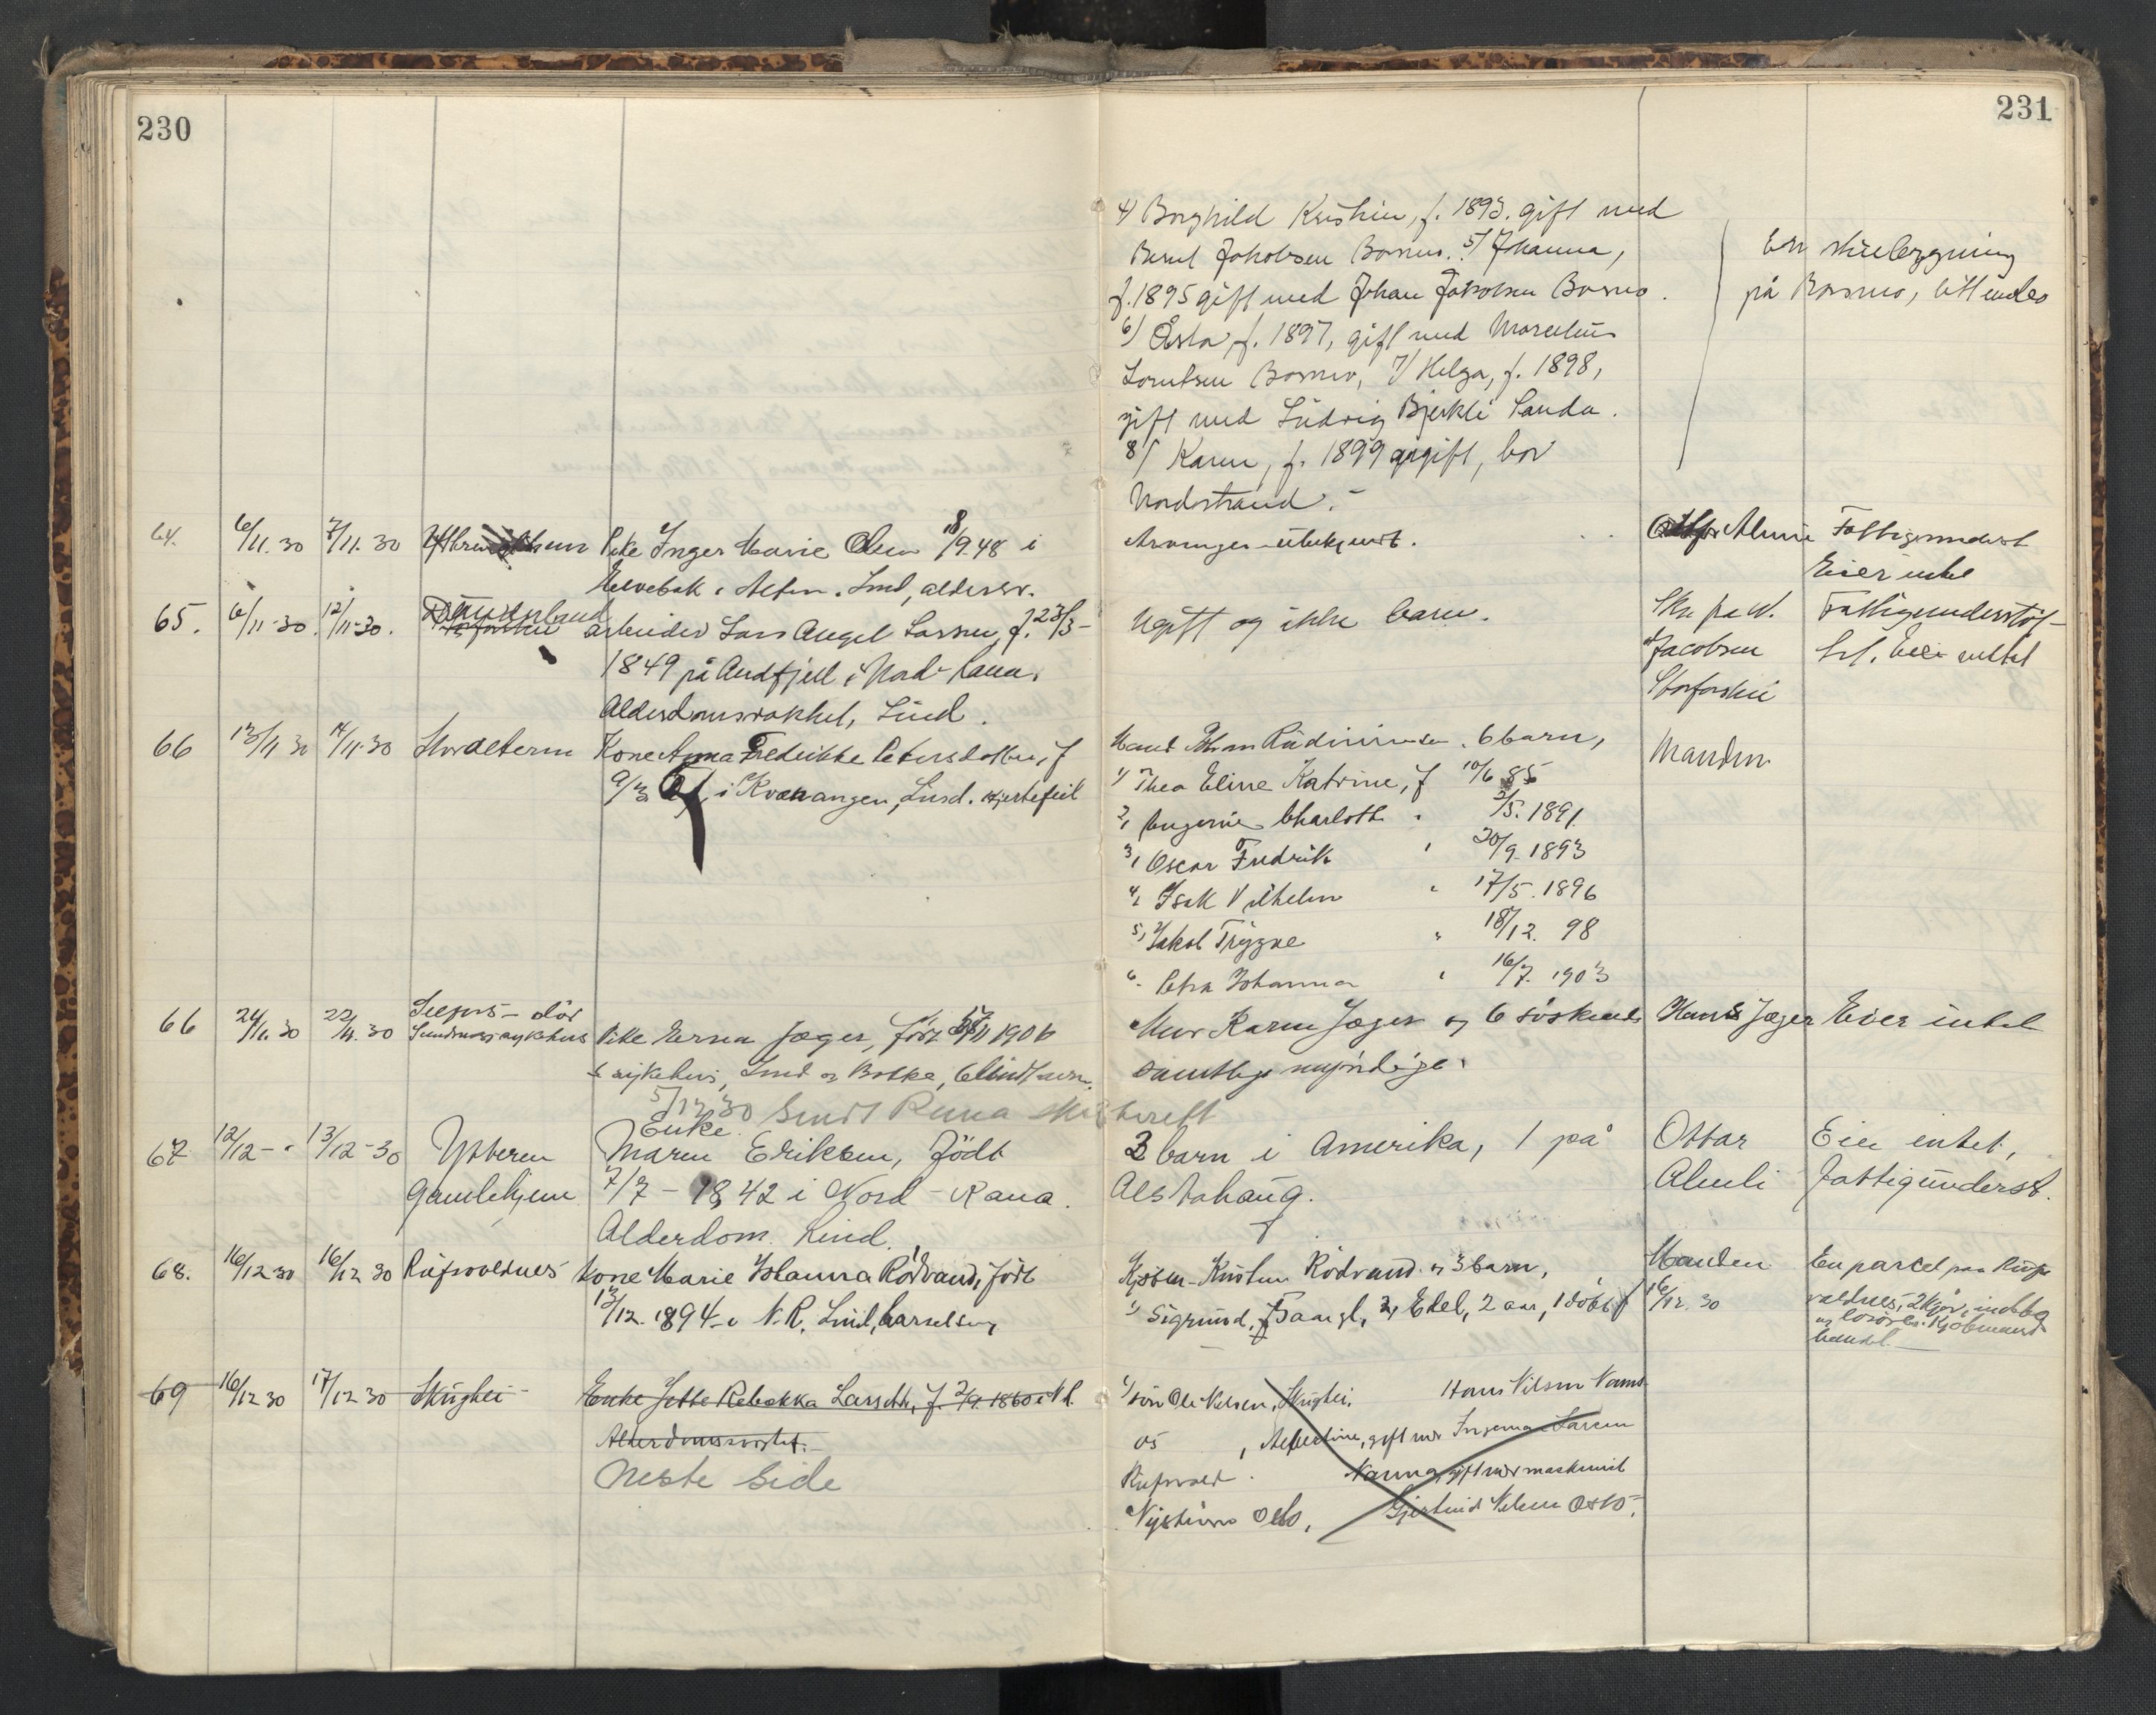 230
231
4) Borghild Kristine, f. 1893. gift med
Bernt Jakobsen Bosmo. 5) Johanna,
f. 1895 gift med Johan Jakobsen Bosmo.
6) Åsta, f. 1897, gift med Marcelius
Lorntsen Bosmo, 7) Helga, f. 1898,
gift med Ludvig Bjerkli Sandu.
8) Karen, f. 1899 ugift, bor
Nordstrand.-
En
på Bosmo, litt indbo
64. 6/11.30 7/11.30 Pike Inger Marie Olsen 18/9.48 i
Elvebak i Alten. Lind, aldersv.
Arvinger ubekjendt.
Almli Fattigunderst
Eier intet
65. 6/11-30. 12/11-30. arbeider Lars Angel Larsen, f. 23/3-
1849 på Andfjell i Nord-Rana.
Alderdomsvakhet, Lind.
Ugift og ikke barn.
Jacobsen
Storforshei
Fattigunderstøt-
tet. Eier intet
66 13/11 30 14/11-30 Kone Anna Fredrikke Petersdatter, f
9/3 i Kvænangen, Lind. Hjertefeil
Mand 6 barn,
1) Thea Eline Katrine, f 10/6 85
2, Eugenie Charlotte " 3/5. 1891
3, Oscar Fredrik " 20/9-1893
4, Isak Vilhelm " 17/5. 1896
5, Jakob Trygve " 18/12. 98
6- Petra Johanna " 16/7. 1903
Manden
66 24/11.30 22/11.30 Selfors - dör
sykehus Pike Erna Jæger, född 1906
sykehus, Lind
Mor Karen Jæger og 6 söskende
samtlige myndige.
Hans Jæger Eier intet
5/12 30 Sendt Rana Skifterett
67 12/12-" 13/12-30 Ytteren
Gamlehjem
Enke
Maren Eriksen, Född
7/7 - 1842 i Nord-Rana.
Alderdom. Lind.
3 barn i Amerika, 1 på
Alstahaug.
Ottar
Almli
Eier intet,
Fattigunderst.
68. 16/12 30 16/12 30 Kone Marie Johanna Rödvand, född
13/12. 1894 i N. R. Lind, barselseng
Kjöbm. Kristen Rödvand og 3 barn,
1) Sigmund, 2, Edel, 2 aar, 1 döbt
Manden
16/12. 30
En parcel paa
2 kjör, indbo
og lösöre. Kjöbmands
handel.
69 16/12 30 17/12 30 Skughei Enke Jette Rebekka Larsen, f. 2/9 1860 i N R.
Alderdomssvakhet.
Neste side
1) sön Ole Nilsen, Skughei. Hans Nilsen
os, Albertine, gift med Ingemar Larsen
Nanna, gift med maskinist
Oslo, Nilsen Oslo.